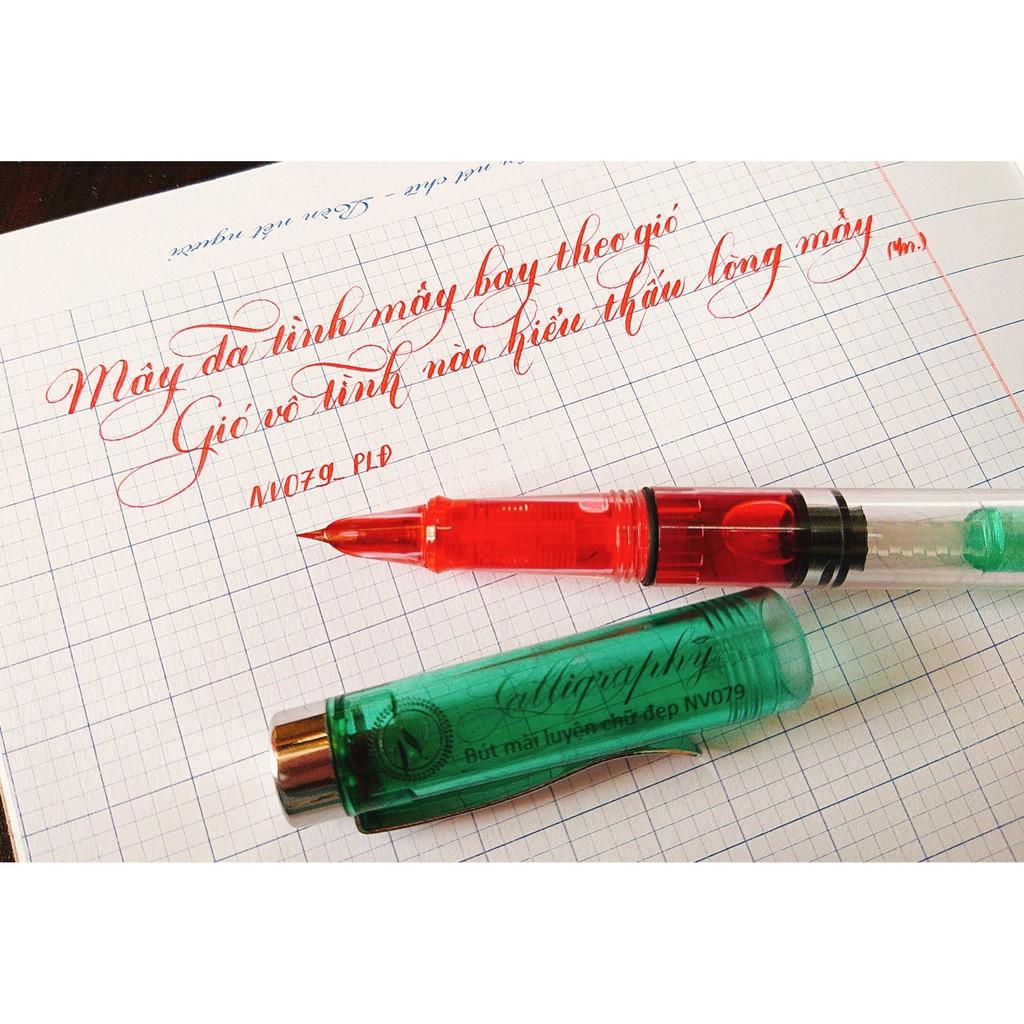 nét chữ - Rèn nết người
Mây đa tình mây bay theo gió
Gió vô tình nào hiểu thấu lòng mây
NV079_PLĐ
Calligraphy
Bút mài luyện chữ đẹp NV079